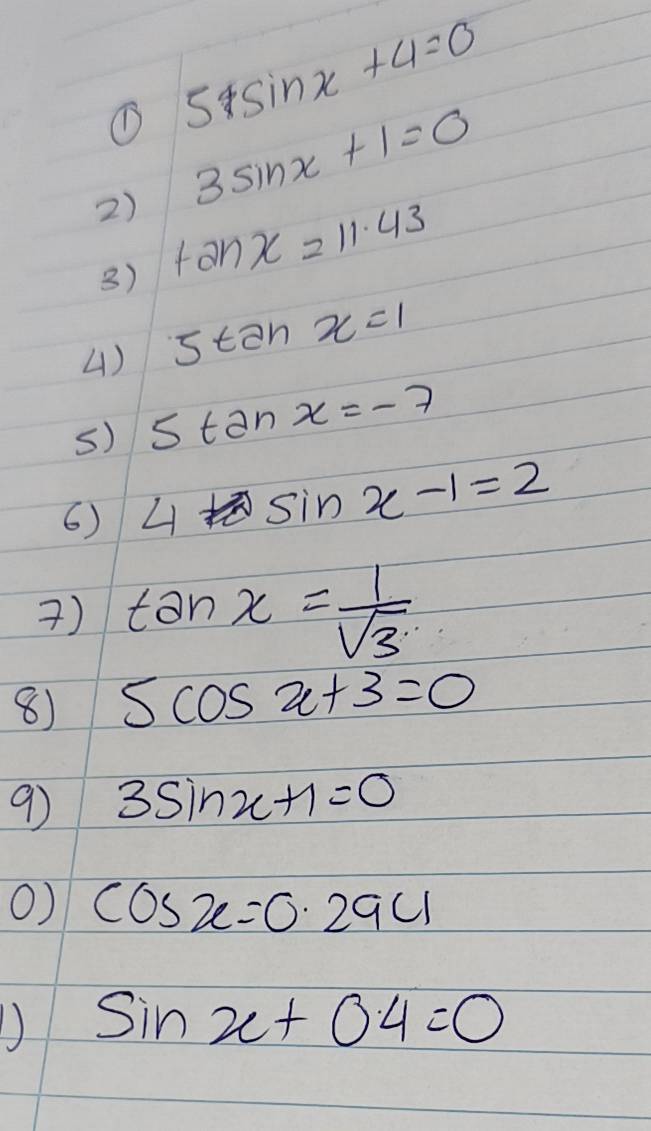 ① 5 sin x + 4 = 0
2) 3 sin x + 1 = 0
3) tan x = 11.43
4) 5 tan x = 1
5) 5 tan x = -7
6) 4 sin x - 1 = 2
7) tan x = 1/√3
8) 5 cos x + 3 = 0
9) 3 sin x + 1 = 0
0) cos x = 0.294
1) Sin x + 0.4 = 0